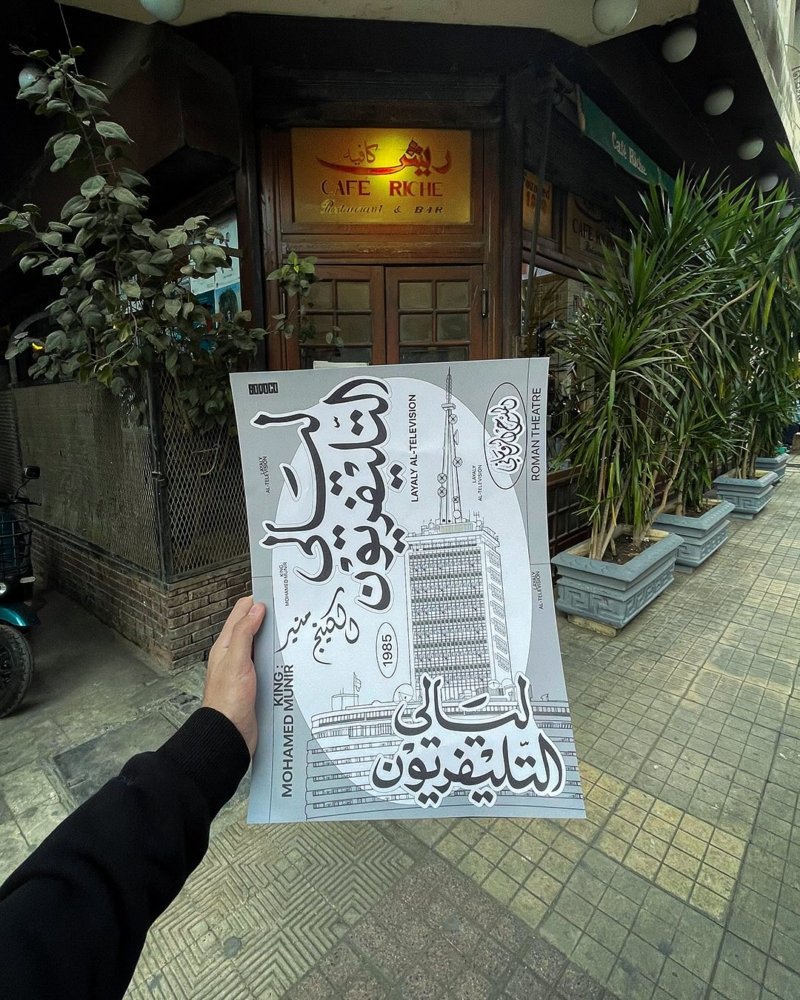 ريش كافيه
CAFE RICHE
Restaurant & BAR
Café Riche
CAFE RI
ليالى
التليفزيون
LAYALY AL-TELEVISION
LAYALY
AL-TELEVISION
LAYALY
AL-TELEVISION
ROMAN THEATRE
KING:
MOHAMED MUNIR
الكينج
منير
1985
KING:
MOHAMED MUNIR
LAYALY
AL-TELEVISION
ليالى
التليفزيون